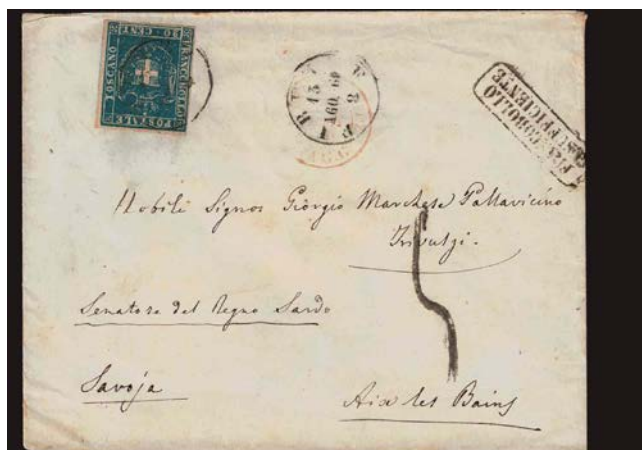 FRANCOBOLLO
POSTALE
TOSCANO
20 CENT
FIRENZE
13
AGO. 60
FRANCOBOLLO
INSUFFICIENTE
Nobile Signor Giorgio Marchese Pallavicino
Trivulzi.
5
Senatore del Regno Sardo
Savoja
Aix les Bains